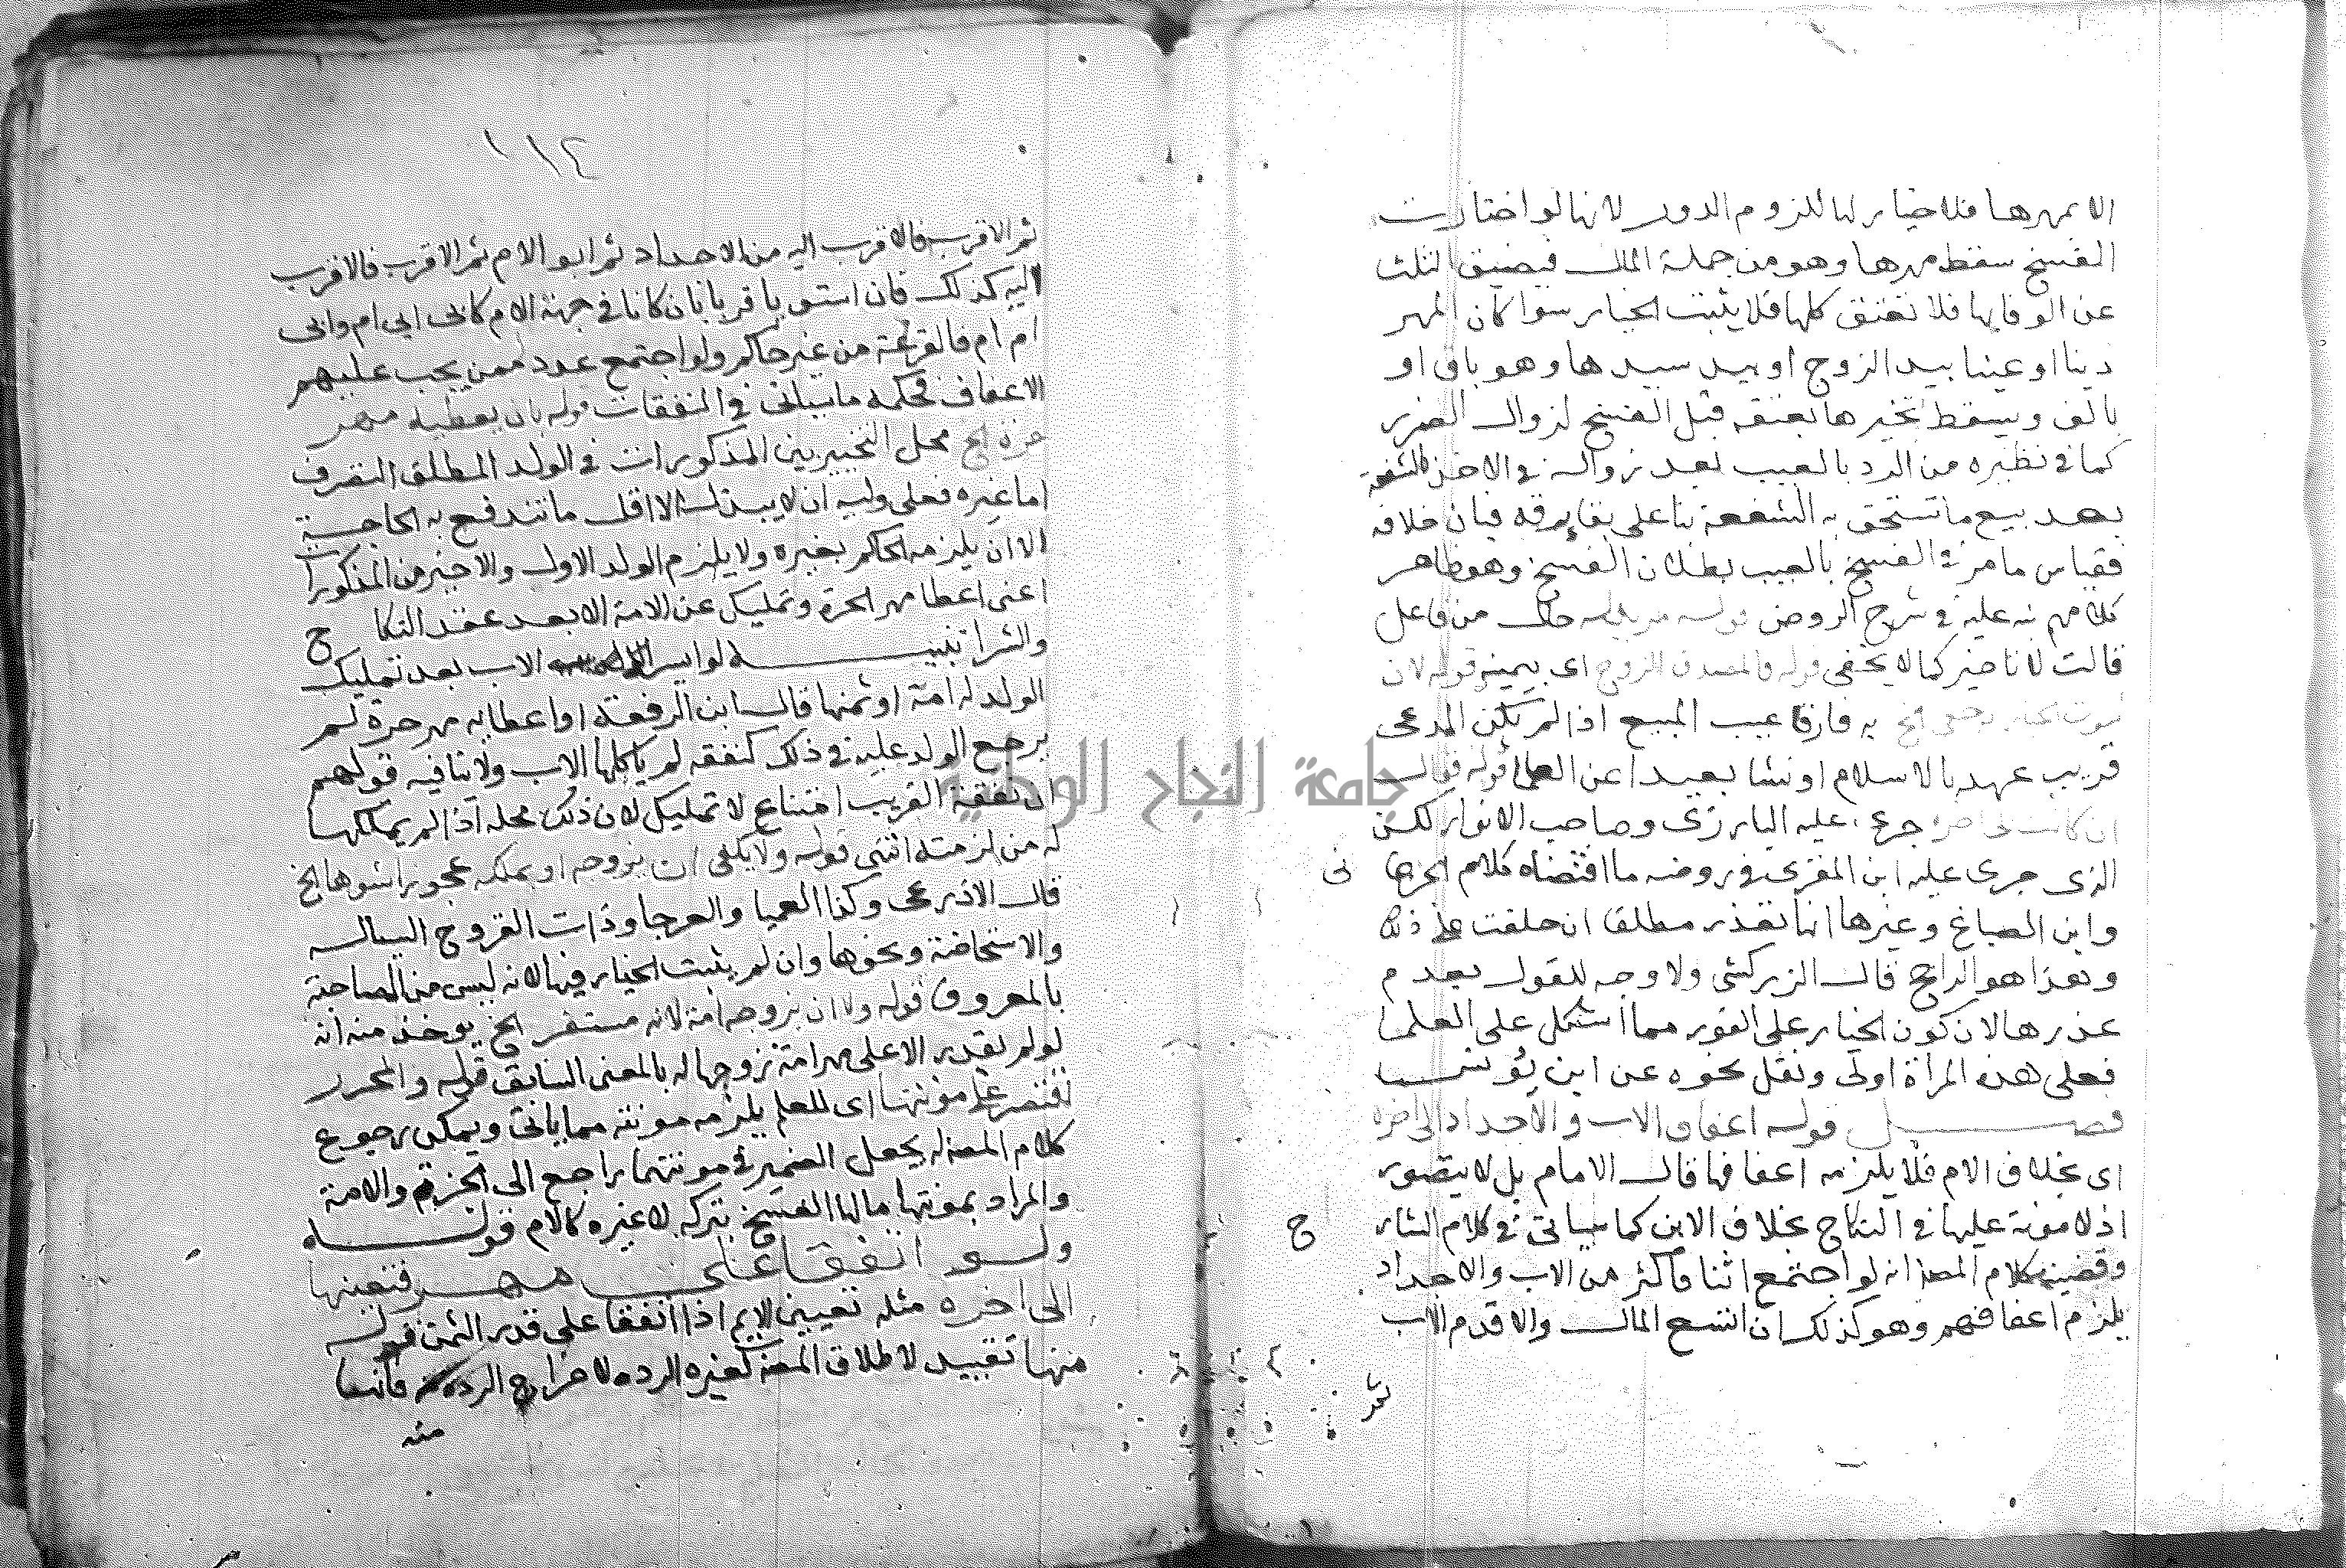 الا بمهرها فلا خيار لها للزوم الدور لانها لو اختارت
الفسخ سقط مهرها وهو من جملة المال فيضيق الثلث
عن الوفا بها فلا تعتق كلها فلا يثبت الخيار سوا كان المهر
دينا او عينا بيد الزوج او بيد سيدها وهو باق او
تالف ويسقط تخيرها بعتقه قبل الفسخ لزوال الضرر
كما في نظيره من الرد بالعيب بعد زواله في الاخذ بالشفعة
بعد بيع ما تستحق به الشفعة بنا على بقا رقه فبان خلافه
فقياس ما مر في الفسخ بالعيب بطلان الفسخ وهو ظاهر
كلامهم نبه عليه في شرح الروض قوله حال من فاعل
قالت لا تاخير كما لا يخفى قوله فالمصدق الزوج اى بيمينه قوله لان
ثبوت الخيار به خفي الخ به فارق عيب المبيع اذا لم يكن المدعى
قريب عهد بالاسلام او نشا بعيدا عن العلما قوله فقال
ان كانت جرى عليه البارزى وصاحب الانوار لكن
الذى جرى عليه ابن المقرى في روضه ما اقتضاه كلام الجرجاني
وابن الصباغ وغيرها انها تعذر مطلقا ان حلفت على ذلك
وهذا هو الراجح قال الزركشى ولا وجه للقول بعدم
عذرها لان كون الخيار على الفور مما اشكل على العلما
فعلى هذه المراة اولى ونقل نحوه عن ابن يونس
فصل قوله اعفاف الاب والاجداد الى اخره
اى بخلاف الام فلا يلزمه اعفافها قال الامام بل لا يتصور
اذ لا مونة عليها في النكاح بخلاف الابن كما سياتى في كلام الشارح
وقضية كلام المصنف انه لو اجتمع اثنا فاكثر من الاب والاجداد
يلزم اعفافهم وهو كذلك ان اتسع المال والا قدم الاب
ثم
١١٤
ثم الاقرب فالاقرب اليه من الاجداد ثم ابو الام ثم الاقرب فالاقرب
اليه كذلك فان استويا قربا بان كانا في جهة الام كابى ابي ام وابى
ام ام فالقرعة من غير حاكم ولو اجتمع عدد ممن يجب عليهم
الاعفاف فحكمه ما سياتى في النفقات قوله بان يعطيه مهر
حرة الخ محل التخيير بين المذكورات في الولد المطلق التصرف
اما غيره فعلى وليه ان لا يبذل الا اقل ما تندفع به الحاجة
الا ان يلزمه الحاكم بغيره ولا يلزم الولد الاول والاخير من المذكورات
اعنى اعطا مهر الحرة وتمليك ثمن الامة الا بعد عقد النكاح
والشرا تنبيه لو ايسر الاب بعد تمليك
الولد له امة او ثمنها قال ابن الرفعة او اعطايه مهر حرة لم
يرجع الولد عليه في ذلك كنفقه لم ياكلها الاب ولا ينافيه قولهم
ان نفقة القريب امتناع لا تمليك لان ذلك محله اذا لم يملكها
له من لزمته انتهى قوله ولا يكفى ان يزوجه او يملكه عجوزا شوها الخ
قال الاذرعى وكذا العميا والعرجا وذات القروح السيالة
والاستحاضة ونحوها وان لم يثبت الخيار فيها لانه ليس من المصاحبة
بالمعروف قوله ولا ان يزوجه امة لانه مستغن الخ يوخذ منه انه
لو لم يقدر الا على مهر امة تزوجها له بالمعنى السابق قوله والمحرر
اقتصر على مونتها اى للعلم يلزمه مونته مما ياتى ويمكن رجوع
كلام المصنف له بجعل الضمير في مونتهما راجع الى الحرة والامة
والمراد بمونتها مالها الفسخ بتركه لا غيره كالام قوله
ولو اتفقا على مهر فتعينها
الى اخره مثله تعيين الاب اذا اتفقا على قدر الثمن قوله
منها تقييد لاطلاق المصنف كغيره الرده لاخراج الرده فانها
منه
جامعة النجاح الوطنية